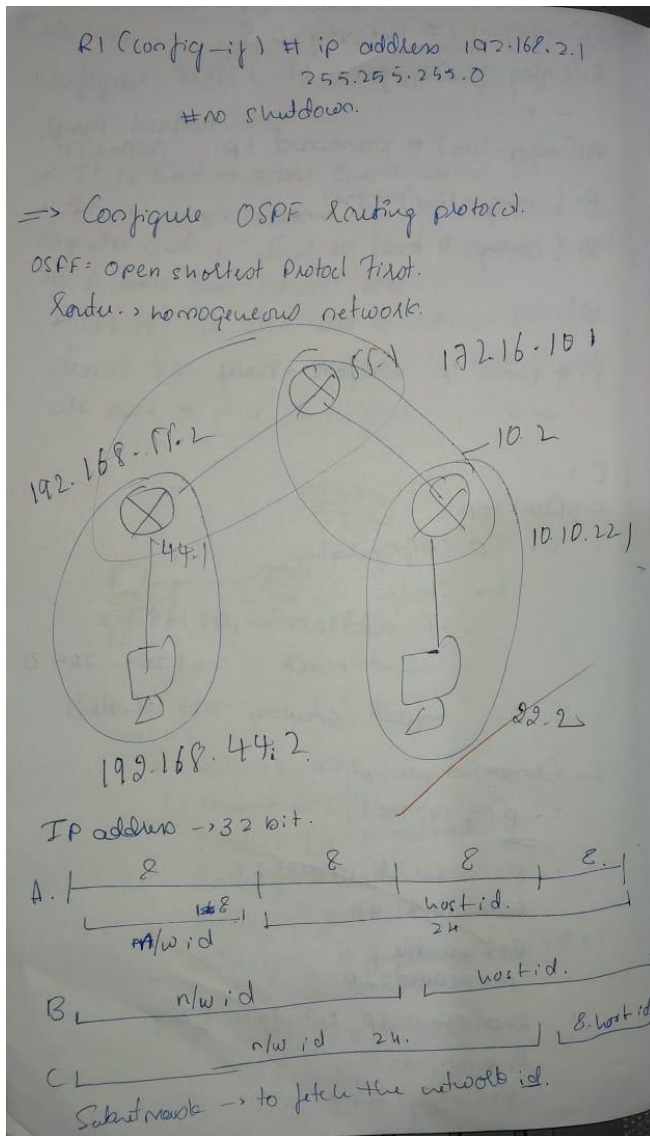 R1 (config-if) # ip address 192.168.2.1
255.255.255.0
#no shutdown.
=> Configure OSPF Routing protocol.
OSPF: Open shortest Protocl First.
Router -> homogeneous network.
55.1
172.16.10 1
192.168.55.2
10.2
44.1
10.10.22 1
22.2
192.168.44.2
IP address -> 32 bit.
A. 8 8 8 8.
8 host id.
n/w id 24
B n/w id host id.
C n/w id 24. 8. host id
Subnetmask -> to fetch the network id.